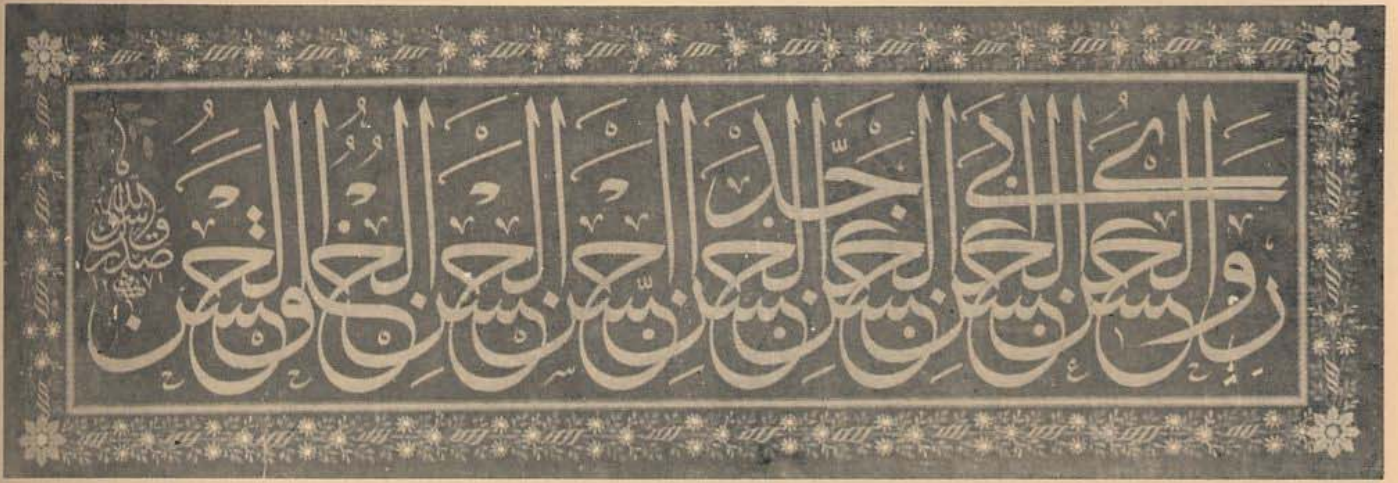 روى الحسن عن الحسن عن ابي الحسن عن جد الحسن ان احسن الحسن الخلق الحسن
صدق رسول الله